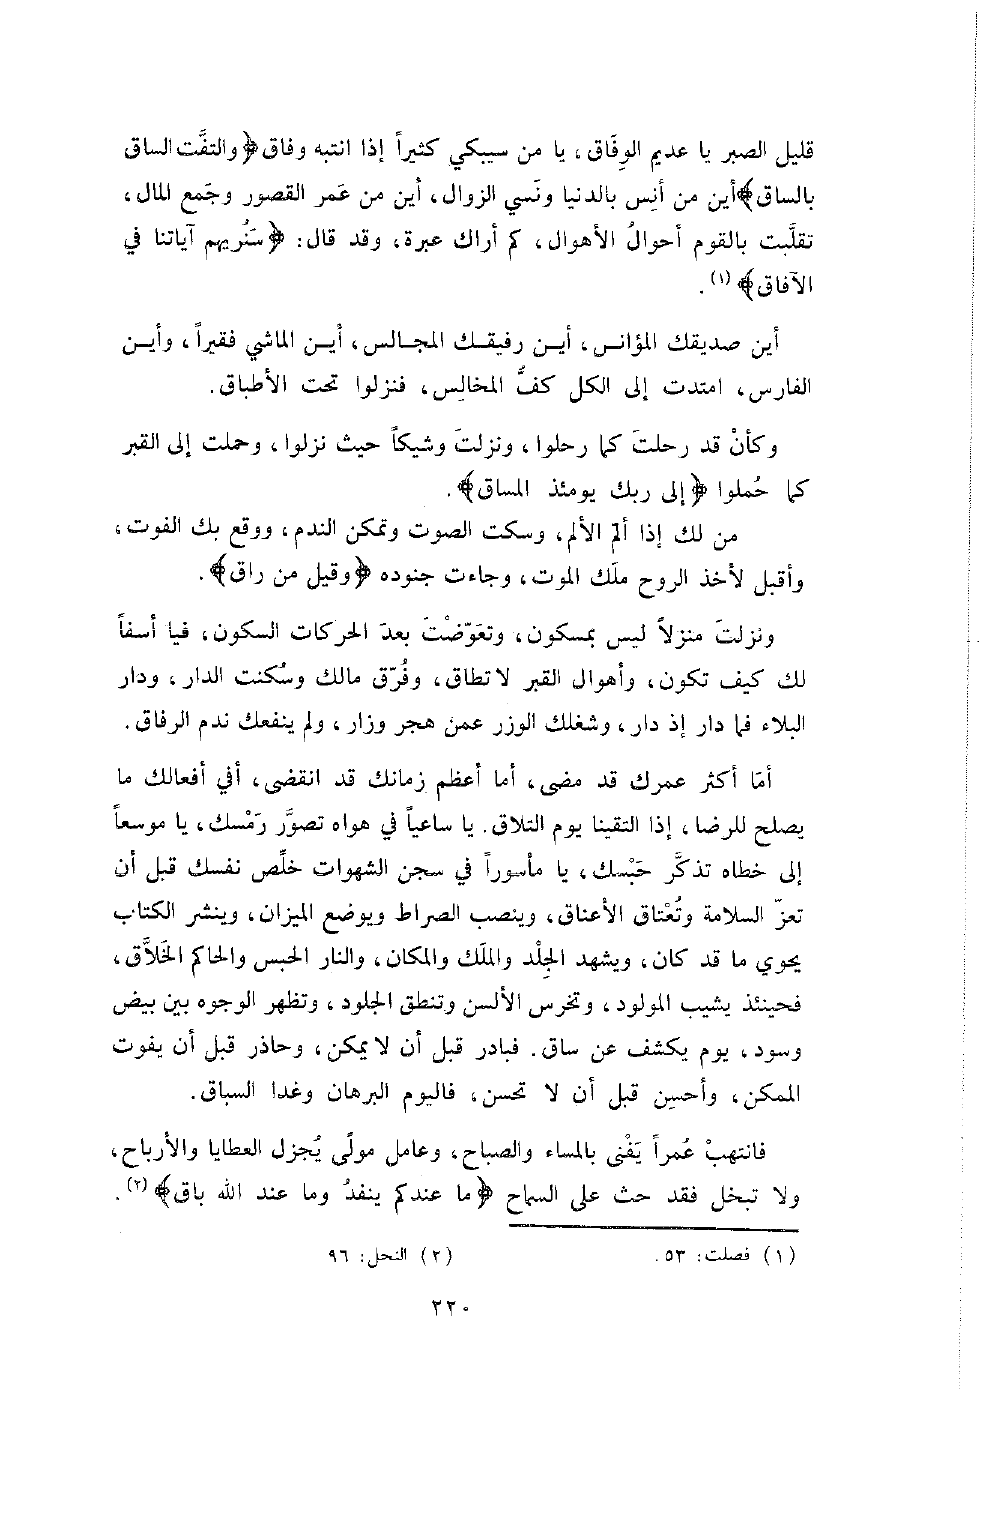 قليل الصبر يا عديم الوِفَاق، يا من سيبكي كثيراً إذا انتبه وفاق ﴿والتفَّت الساق
بالساق﴾ أين من أَنِس بالدنيا ونَسي الزوال، أين من عَمر القصور وجَمع المال،
تقلَّبت بالقوم أحوالُ الأهوال، كم أراك عبرة، وقد قال: ﴿سَنُريهم آياتنا في
الآفاق﴾ (١).
أين صديقك المؤانس، أين رفيقك المجالس، أين الماشي فقيراً، وأين
الفارس، امتدت إلى الكل كفُّ المخالِس، فنزلوا تحت الأطباق.
وكأنْ قد رحلتَ كما رحلوا، ونزلتَ وشيكاً حيث نزلوا، وحملت إلى القبر
كما حُملوا ﴿إلى ربك يومئذ المساق﴾.
من لك إذا ألمّ الألم، وسكت الصوت وتمكن الندم، ووقع بك الفوت،
وأقبل لأخذ الروح ملَك الموت، وجاءت جنوده ﴿وقيل من راق﴾.
ونزلتَ منزلاً ليس بمسكون، وتعَوّضْتَ بعدَ الحركات السكون، فيا أسفاً
لك كيف تكون، وأهوال القبر لا تطاق، وفُرّق مالك وسُكنت الدار، ودار
البلاء فما دار إذ دار، وشغلك الوزر عمن هجر وزار، ولم ينفعك ندم الرفاق.
أمَا أكثر عمرك قد مضى، أما أعظم زمانك قد انقضى، أفي أفعالك ما
يصلح للرضا، إذا التقينا يوم التلاق. يا ساعياً في هواه تصوَّر رَمْسك، يا موسعاً
إلى خطاه تذكَّر حَبْسك، يا مأسوراً في سجن الشهوات خلِّص نفسك قبل أن
تعزّ السلامة وتُعْتاق الأعناق، وينصب الصراط ويوضع الميزان، وينشر الكتاب
يحوي ما قد كان، ويشهد الجِلْد والملَك والمكان، والنار الحبس والحاكم الخَلاَّق،
فحينئذ يشيب المولود، وتخرس الألسن وتنطق الجلود، وتظهر الوجوه بين بيض
وسود، يوم يكشف عن ساق. فبادر قبل أن لا يمكن، وحاذر قبل أن يفوت
الممكن، وأحسِن قبل أن لا تحسن، فاليوم البرهان وغدا السباق.
فانتهبْ عُمراً يَفْنى بالمساء والصباح، وعامل مولًى يُجزل العطايا والأرباح،
ولا تبخل فقد حث على السماح ﴿ما عندكم ينفدُ وما عند الله باق﴾ (٢).
(١) فصلت: ٥٣. (٢) النحل: ٩٦
٢٢٠